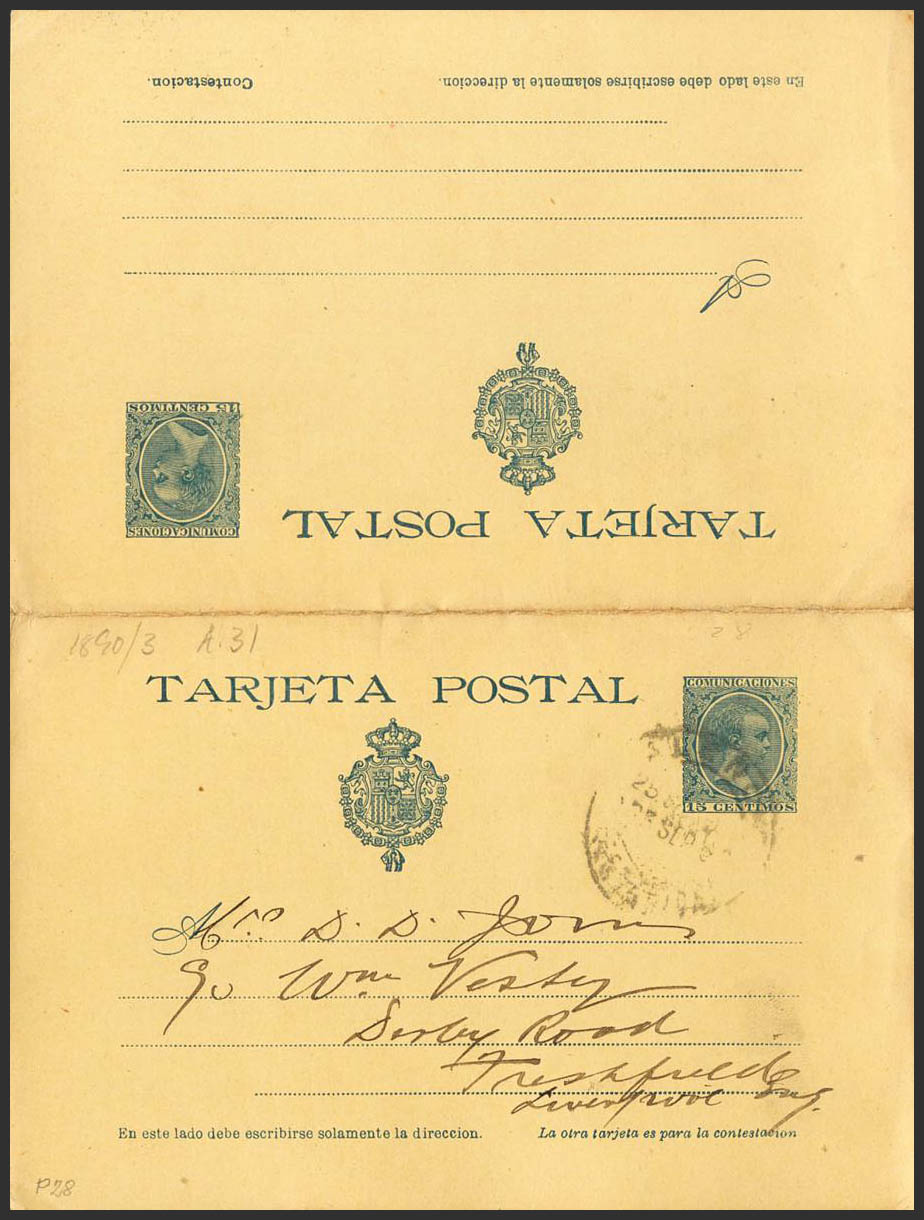 Contestacion.
En este lado debe escribirse solamente la direccion.
A
15 CENTIMOS
COMUNICACIONES
TARJETA POSTAL
1890/3 A.31
28
TARJETA POSTAL
COMUNICACIONES
15 CENTIMOS
Mrs D. D. Jones
c/o Wm Vestey
Derby Road
Freshfield
Liverpool Eng.
En este lado debe escribirse solamente la direccion.
La otra tarjeta es para la contestacion
P28